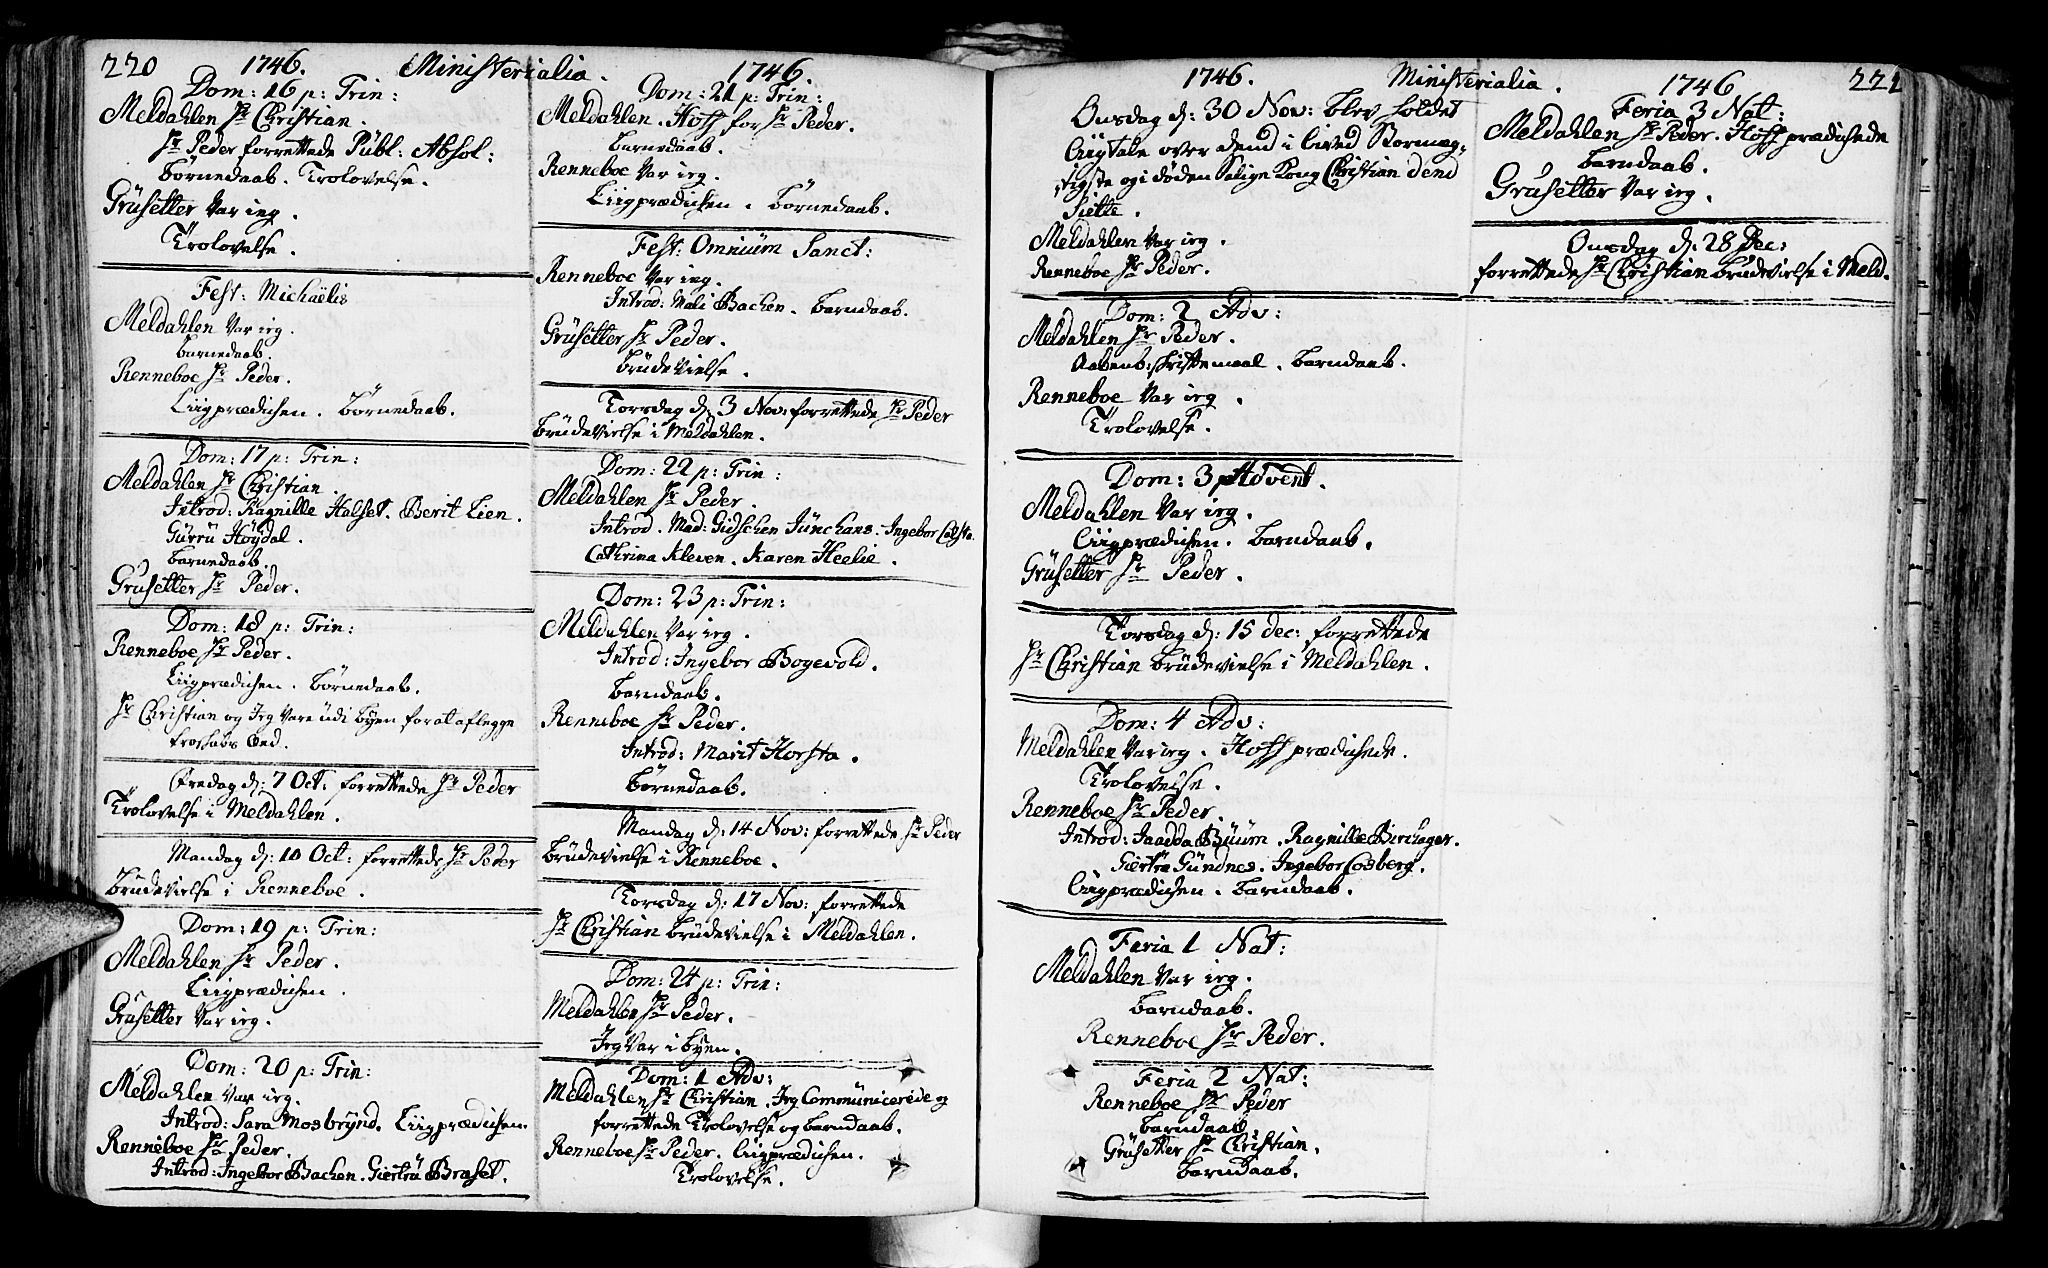 220 1746. Ministerialia. 1746.
Dom: 16 p: Trin:
Meldahlen Hr Christian.
Hr Peder forrettede Publ: Absol:
Børnedaab. Trolovelse.
Grüsetter Var ieg.
Trolovelse.
Fest: Michaëlis
Meldahlen Var ieg.
Barnedaab.
Renneboe Hr Peder.
Liigprædichen. Børnedaab.
Dom: 17 p: Trin:
Meldahlen Hr Christian.
Introd: Ragnille Halset. Berit Lien.
Gürrü Høydal.
Barnedaab.
Grüsetter Hr Peder.
Dom: 18 p: Trin:
Renneboe Hr Peder.
Liigprædichen. Børnedaab.
Hr Christian og Jeg Vare üdi Byen for at aflegge
Troskabs Eed.
Fredag d: 7 Oct: forrettede Hr Peder
Trolovelse i Meldahlen.
Mandag d: 10 Oct: forrettede Hr Peder
Brüdevielse i Renneboe.
Dom: 19 p: Trin:
Meldahlen Hr Peder.
Liigprædichen.
Grüsetter Var ieg.
Dom: 20 p: Trin:
Meldahlen Var ieg.
Introd: Sara Mosbrynd. Liigprædichen.
Renneboe Hr Peder.
Introd: Ingebor Bachen. Giertrü Braset.
Dom: 21 p: Trin:
Meldahlen. Hoff for Hr Peder.
Barnedaab.
Renneboe Var ieg.
Liigprædichen. Børnedaab.
Fest: Omniüm Sanct:
Renneboe Var ieg.
Introd: Mali Bachen. Barndaab.
Grüsetter Hr Peder.
Brüdevielse.
Torsdag d: 3 Nov: forrettede Hr Peder
Brüdevielse i Meldahlen.
Dom: 22 p: Trin:
Meldahlen Hr Peder.
Introd. Mad: Gidschen Jünchans. Ingebor
Cathrina Kleven. Karen Heelie.
Dom: 23 p: Trin:
Meldahlen Var ieg.
Introd: Ingebor Bogevold.
Barndaab.
Renneboe Hr Peder.
Introd: Marit Horsta.
Børnedaab.
Mandag d: 14 Nov: forrettede Hr Peder
Brüdevielse i Renneboe.
Torsdag d: 17 Nov: forrettede
Hr Christian Brüdevielse i Meldahlen.
Dom: 24 p: Trin:
Meldahlen Hr Peder.
Jeg Var i Byen.
Dom: 1 Adv:
Meldahlen Hr Christian. Jeg Communicerede og
forrettede Trolovelse og Barndaab.
Renneboe Hr Peder. Liigprædichen.
Trolovelse.
1746. Ministerialia. 1746 221
Onsdag d: 30 Nov: blev holdet
Liigtale over dend i Lived Stormæg-
tigste og i døden Salige Kong Christian dend
Siette.
Meldahlen Var ieg.
Renneboe Hr Peder.
Dom: 2 Adv:
Meldahlen Hr Peder.
Aabenb: Skriftemaal. Barndaab.
Renneboe Var ieg.
Trolovelse.
Dom: 3 Advent.
Meldahlen Var ieg.
Liigprædichen. Barndaab.
Grüsetter Hr Peder.
Torsdag d: 15 dec: forrettede
Hr Christian Brüdevielse i Meldahlen.
Dom: 4 Adv:
Meldahlen Var ieg. Hoff prædichede.
Trolovelse.
Renneboe Hr Peder.
Introd: Jaadda Büüm. Ragnille Birchager.
Giertrü Gündnes. Ingebor Cosberg.
Liigprædichen. Barndaab.
Feria 1 Nat:
Meldahlen Var ieg.
Barndaab.
Renneboe Hr Peder.
Feria 2 Nat:
Renneboe Hr Peder
Barndaab.
Grüsetter Hr Christian.
Barndaab.
Feria 3 Nat:
Meldahlen Hr Peder. Hoff prædichede
Barndaab.
Grüsetter Var ieg.
Onsdag d: 28 Dec:
forrettede Hr Christian Brüdevielse i Meld.